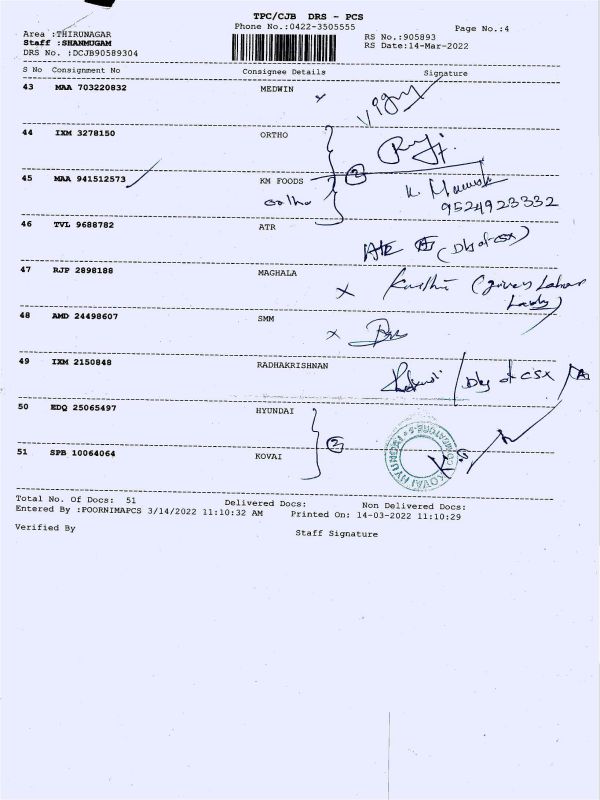 TPC/CJB DRS - PCS
Phone No.:0422-3505555
Page No.:4
Area :THIRUNAGAR
RS No.:905893
Staff :SHANMUGAM
RS Date:14-Mar-2022
DRS No. :DCJB90589304
S No Consignment No Consignee Details Signature
43 MAA 703220832 MEDWIN
44 IXM 3278150 ORTHO
45 MAA 941512573 KM FOODS 2
9524923332
46 TVL 9688782 ATR
47 RJP 2898188 MAGHALA x
48 AMD 24498607 SMM x
49 IXM 2150848 RADHAKRISHNAN
50 EDQ 25065497 HYUNDAI
2
51 SPB 10064064 KOVAI
KOVAI HYUNDAI
Total No. Of Docs: 51 Delivered Docs: Non Delivered Docs:
Entered By :POORNIMAPCS 3/14/2022 11:10:32 AM Printed On: 14-03-2022 11:10:29
Verified By Staff Signature